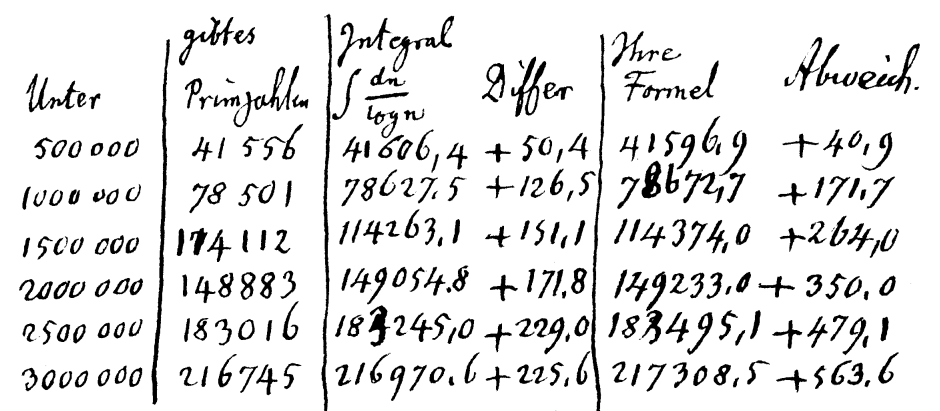 gibt es Integral Ihre
Unter Primzahlen ∫ dn/log n Differ Formel Abweich.
500 000 41 556 41606,4 +50,4 41596,9 +40,9
1000 000 78 501 78627.5 +126,5 78672,7 +171.7
1500 000 114112 114263.1 +151,1 114374,0 +264,0
2000 000 148883 149054.8 +171.8 149233.0 +350.0
2500 000 183016 183245,0 +229.0 183495,1 +479,1
3000 000 216745 216970.6 +225.6 217308.5 +563.6